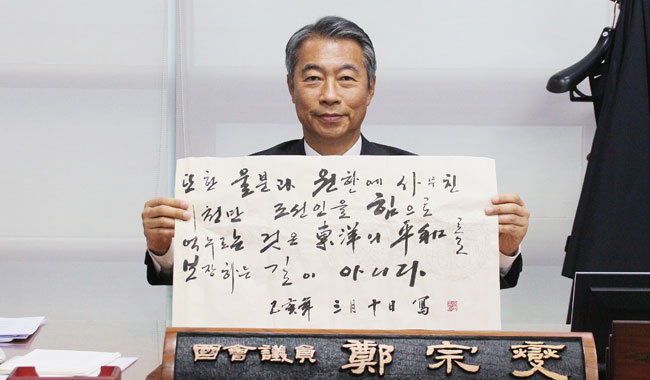 또한 울분과 원한에 사무친
이천만 조선인을 힘으로
억누르는 것은 東洋의 平和를
보장하는 길이 아니다.
己亥年 三月十日 寫
國會議員 鄭宗燮